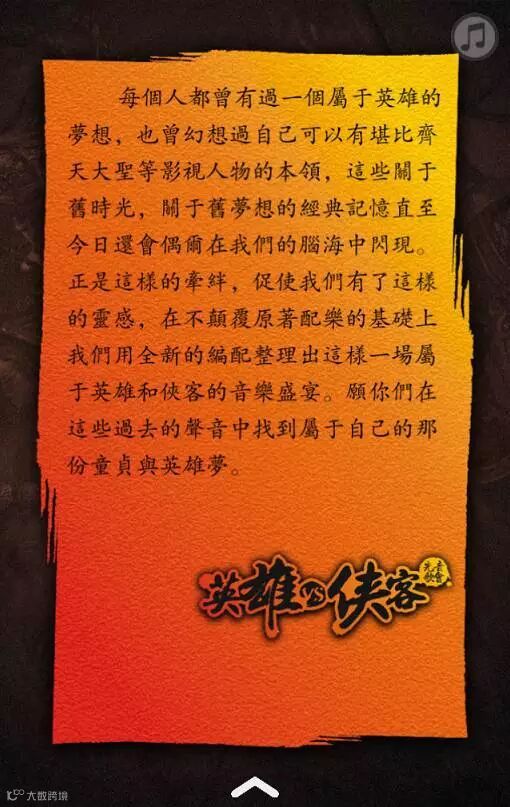 每個人都曾有過一個屬于英雄的
夢想，也曾幻想過自己可以有堪比齊
天大聖等影視人物的本領，這些關于
舊時光，關于舊夢想的經典記憶直至
今日還會偶爾在我們的腦海中閃現。
正是這樣的牽絆，促使我們有了這樣
的靈感，在不顛覆原著配樂的基礎上
我們用全新的編配整理出這樣一場屬
于英雄和俠客的音樂盛宴。願你們在
這些過去的聲音中找到屬于自己的那
份童貞與英雄夢。
英雄VS俠客
大數跨境